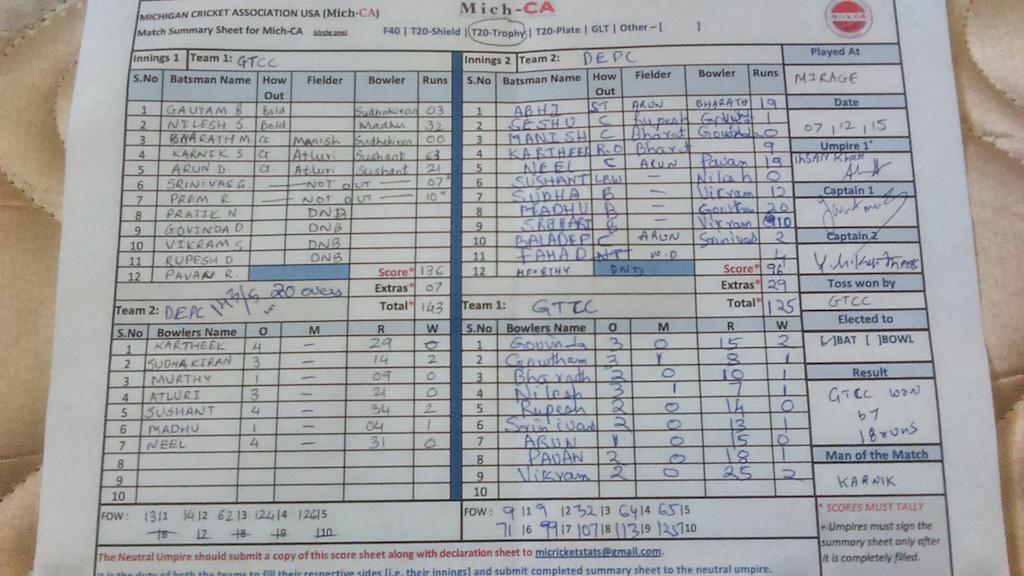 MICHIGAN CRICKET ASSOCIATION USA (Mich-CA)
Mich-CA
Match Summary Sheet for Mich-CA (circle one) F40 | T20-Shield | T20-Trophy | T20-Plate | GLT | Other – [ ]
Innings 1 Team 1: GTCC
S.No Batsman Name How Out Fielder Bowler Runs
1 GAUTAM B Bold Sudhakiran 03
2 NILESH S. Bold Madhu 32
3 BHARATH M c Manish Sudhakiran 00
4 KARNIK S C Atluri Sushant 63
5 ARUN D. C. Atluri Sushant 21
6 SRINIVAS G. NOT OUT 07*
7 PREM R NOT OUT 10*
8 PRATIK N DNB
9 GOVINDA D DNB
10 VIKRAM S DNB
11 RUPESH D. DNB
12 PAVAN R. Score* 136
Extras* 07
Total* 143
Team 2: DEPC 143/5 20 overs
S.No Bowlers Name O M R W
1 KARTHEEK 4 – 29 0
2 SUDHA KIRAN 3 – 14 2
3 MURTHY 1 – 09 0
4 ATLURI 3 – 21 0
5 SUSHANT 4 – 34 2
6 MADHU 1 – 04 1
7 NEEL 4 – 31 0
8
9
10
FOW: 13/1 14/2 62/3 124/4 126/5
/6 /7 /8 /9 /10
Innings 2 Team 2: DEPC
S.No Batsman Name How Out Fielder Bowler Runs
1 ABHI ST ARUN BHARATH 19
2 SESHU C Rupesh Govinda 1
3 MANISH C Bharat Goutham 0
4 KARTHEEK R.O Bharat 9
5 NEEL C ARUN Pavan 19
6 SUSHANT LBW – Nilesh 0
7 SUDHA B – Vikram 12
8 MADHU B – Goutham 20
9 B – Vikram 10
10 BALADEP C ARUN Srinivas 2
11 FAHAD NOT W.D 4
12 MOORTHY DND Score* 96
Extras* 29
Total* 125
Team 1: GTCC
S.No Bowlers Name O M R W
1 Govinda 3 0 15 2
2 Goutham 3 1 8 1
3 Bharath 2 0 10 1
4 Nilesh 3 1 7 1
5 Rupesh 2 0 14 0
6 Srinivas 2 0 13 1
7 ARUN 1 0 15 0
8 PAVAN 2 0 18 1
9 Vikram 2 0 25 2
10
FOW: 9/1 9/2 32/3 64/4 65/5
71/6 99/7 107/8 113/9 125/10
Played At
MIRAGE
Date
07/12/15
Umpire 1*
IHSAN Khan
Captain 1
Captain 2
Toss won by
GTCC
Elected to
[✓]BAT [ ]BOWL
Result
GTCC WON
by
18 runs
Man of the Match
KARNIK
* SCORES MUST TALLY
+ Umpires must sign the
summary sheet only after
it is completely filled.
The Neutral Umpire should submit a copy of this score sheet along with declaration sheet to micricketstats@gmail.com.
It is the duty of both the teams to fill their respective sides [i.e. their innings] and submit completed summary sheet to the neutral umpire.